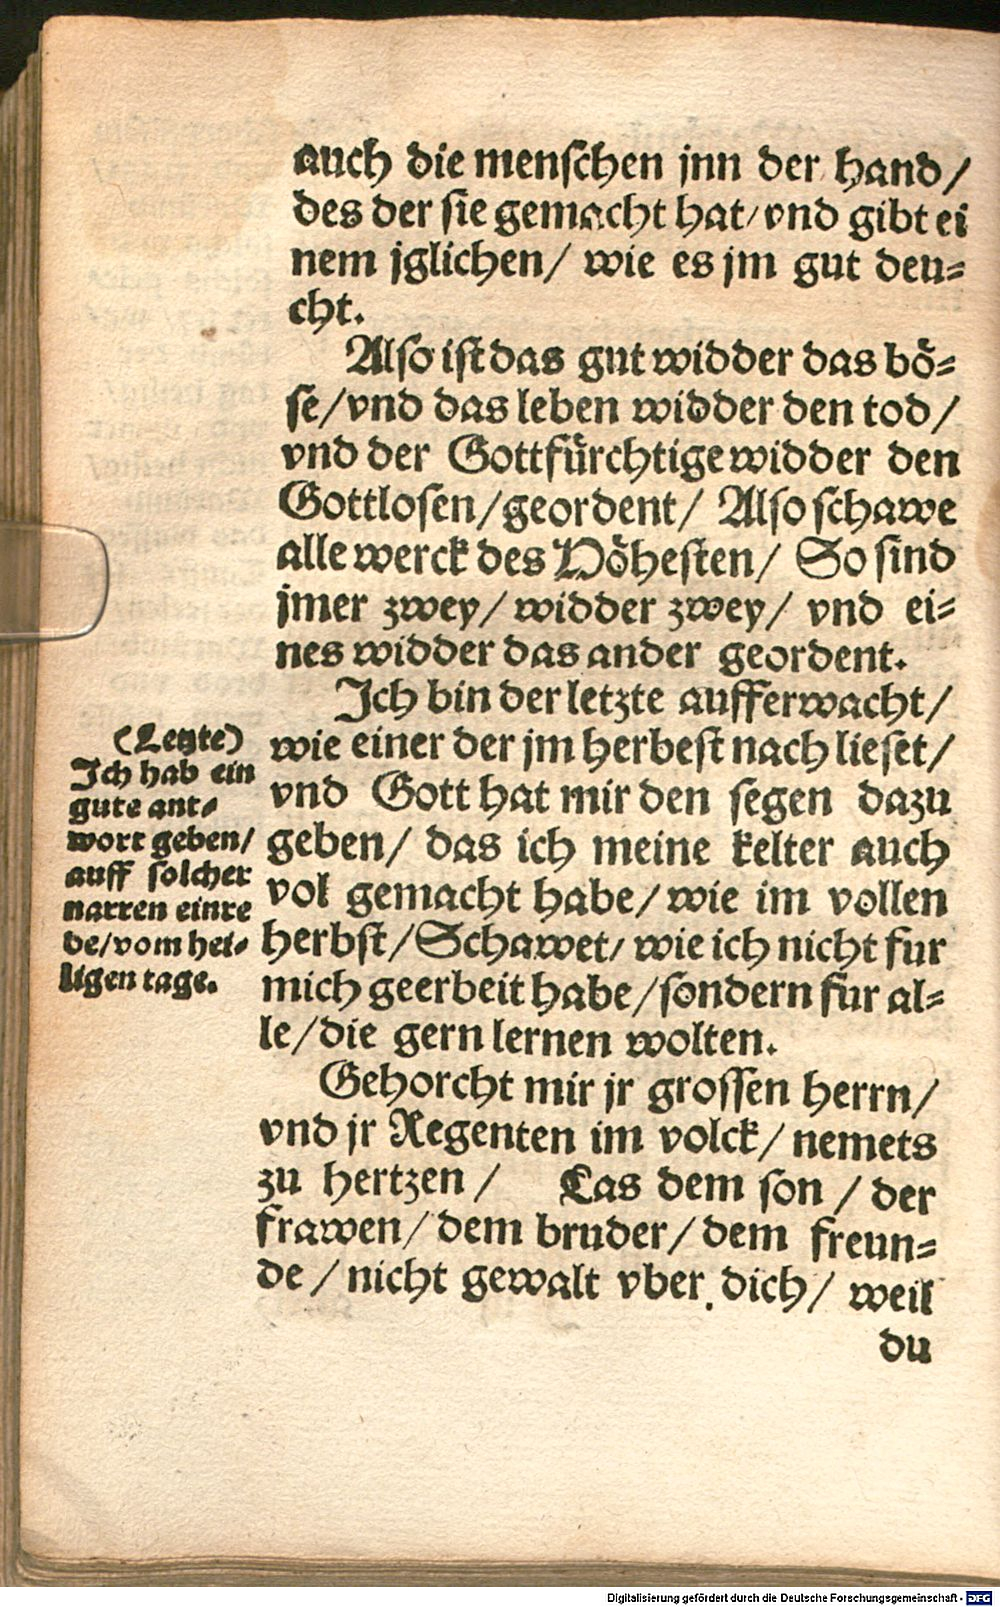 auch die menschen jnn der hand/
des der sie gemacht hat/ vnd gibt ei
nem jglichen/ wie es jm gut deu=
cht.
Also ist das gut widder das bö=
se/vnd das leben widder den tod/
vnd der Gottfürchtige widder den
Gottlosen/geordent/ Also schawe
alle werck des Höhesten/ So sind
jmer zwey/ widder zwey/ vnd ei=
nes widder das ander geordent.
Ich bin der letzte aufferwacht/
wie einer der jm herbest nach lieset/
vnd Gott hat mir den segen dazu
geben/ das ich meine kelter auch
vol gemacht habe/ wie im vollen
herbst/Schawet/ wie ich nicht fur
mich geerbeit habe/sondern fur al=
le/die gern lernen wolten.
Gehorcht mir jr grossen herrn/
vnd jr Regenten im volck/ nemets
zu hertzen / Las dem son / der
frawen/ dem bruder/ dem freun=
de / nicht gewalt vber dich/ weil
du
(Letzte)
Ich hab ein
gute ant=
wort geben/
auff solcher
narren einre
de/vom hei=
ligen tage.
Digitalisierung gefördert durch die Deutsche Forschungsgemeinschaft - DFG